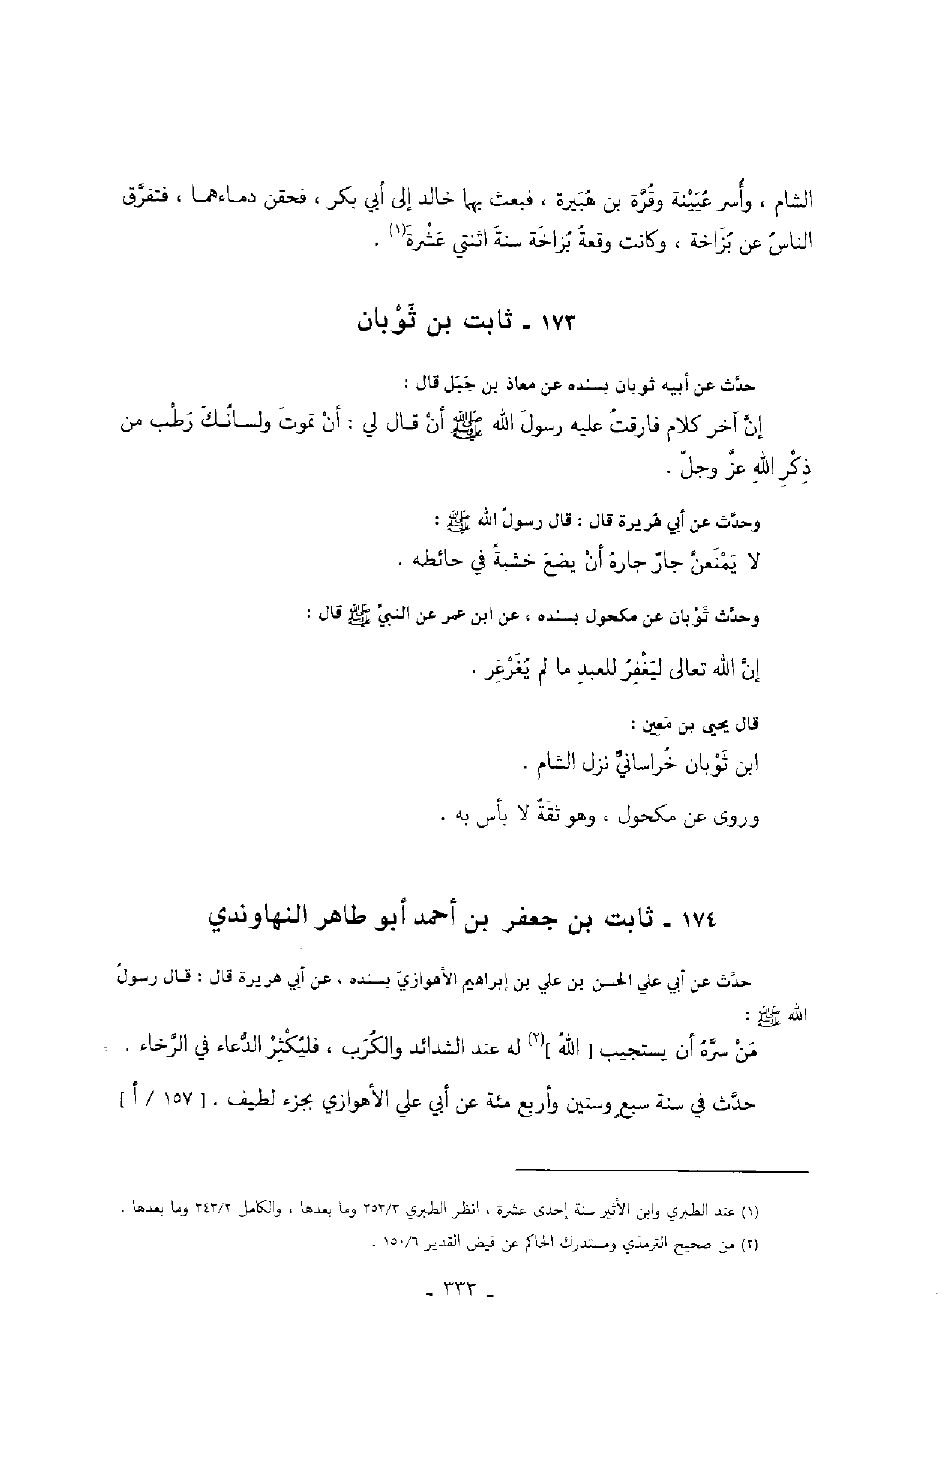 الشام ، وأُسر عُيَيْنة وقُرَّة بن هُبَيرة ، فبعث بها خالد إلى أبي بكر ، فحقن دماءهما ، فتفرَّق
الناسُ عن بُزَاخة ، وكانت وقعةُ بُزاخَة سنةَ اثنتي عَشْرةَ(١) .
١٧٣ ـ ثابت بن ثَوْبان
حدَّث عن أبيه ثوبان بسنده عن معاذ بن جَبَل قال :
إنَّ آخر كلام فارقتُ عليه رسولَ الله ﷺ أنْ قال لي : أنْ تموتَ ولسانُكَ رَطْب من
ذِكْرِ اللهِ عزَّ وجلّ .
وحدَّث عن أبي هُريرة قال : قال رسولُ الله ﷺ :
لا يَمْنَعنَّ جارٌ جارهُ أنْ يضعَ خشبةً في حائطه .
وحدَّث ثَوْبان عن مكحول بسنده ، عن ابن عمر عن النبيِّ ﷺ قال :
إنَّ الله تعالى ليَغْفِرُ للعبدِ ما لم يُغَرْغِر .
قال يحيى بن مَعين :
ابن ثَوْبان خُراسانيٌّ نزل الشام .
وروى عن مكحول ، وهو ثقةٌ لا بأس به .
١٧٤ ـ ثابت بن جعفر بن أحمد أبو طاهر النهاوندي
حدَّث عن أبي علي الحسن بن علي بن إبراهيم الأهوازيّ بسنده ، عن أبي هريرة قال : قال رسولُ
الله ﷺ :
مَنْ سرَّهُ أن يستجيب [ اللهُ ](٢) له عند الشدائد والكُرَب ، فليُكْثِرُ الدُّعاء في الرَّخاء .
حدَّث في سنة سبعٍ وستين وأربع مئة عن أبي علي الأهوازي بجزء لطيف . [ ١٥٧ / أ ]
(١) عند الطبري وابن الأثير سنة إحدى عشرة ، انظر الطبري ٢٥٣/٣ وما بعدها ، والكامل ٣٤٣/٢ وما بعدها .
(٢) من صحيح الترمذي ومستدرك الحاكم عن فيض القدير ١٥٠/٦ .
ـ ٣٣٣ ـ